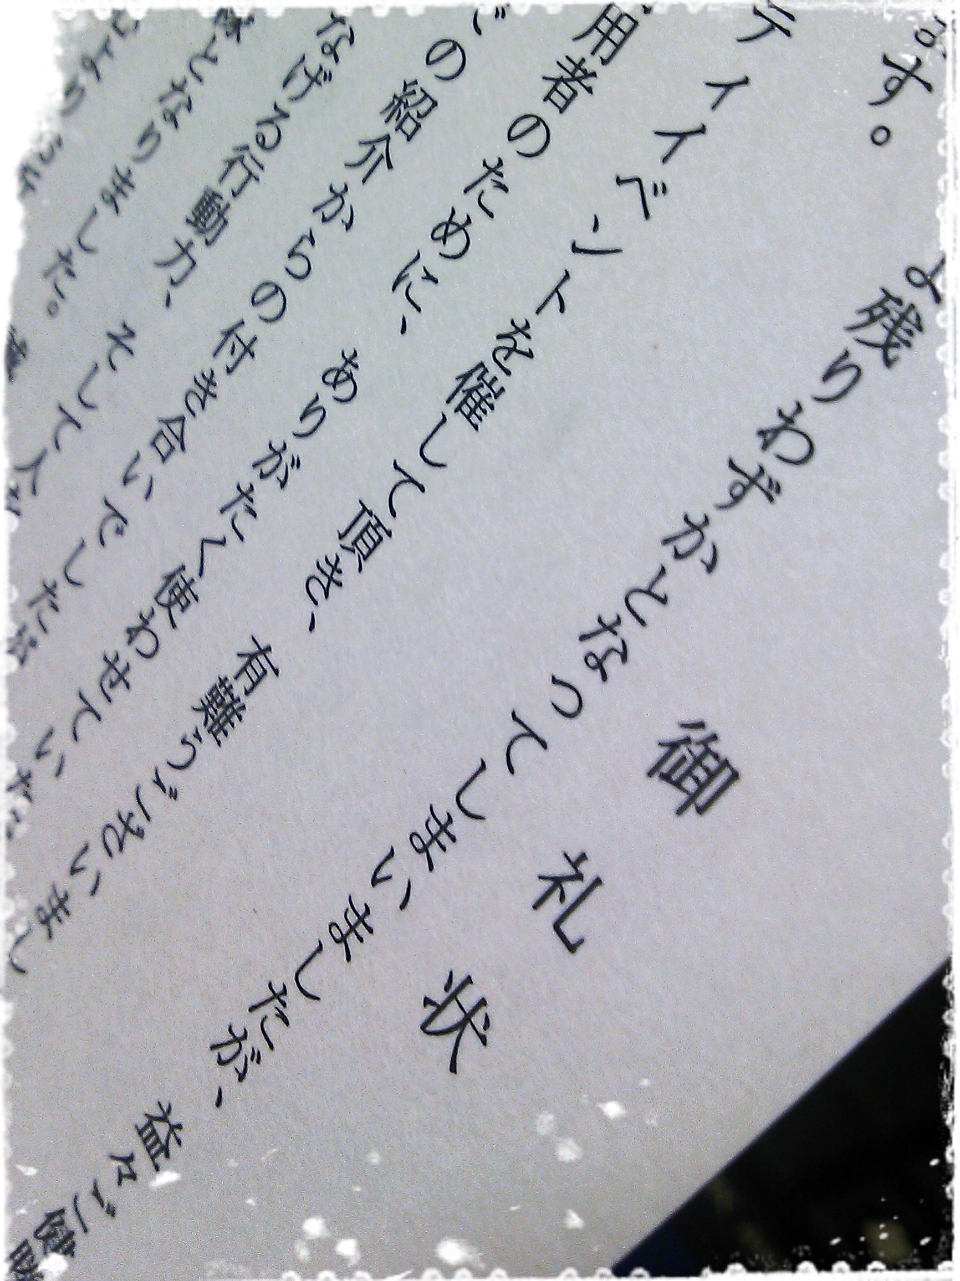 御礼状
残りわずかとなってしまいましたが、益々ご健
す。
ティイベントを催して頂き、有難うございまし
用者のために、ありがたく使わせていた
の紹介からの付き合いでした
なげる行動力、そして人
となりました。